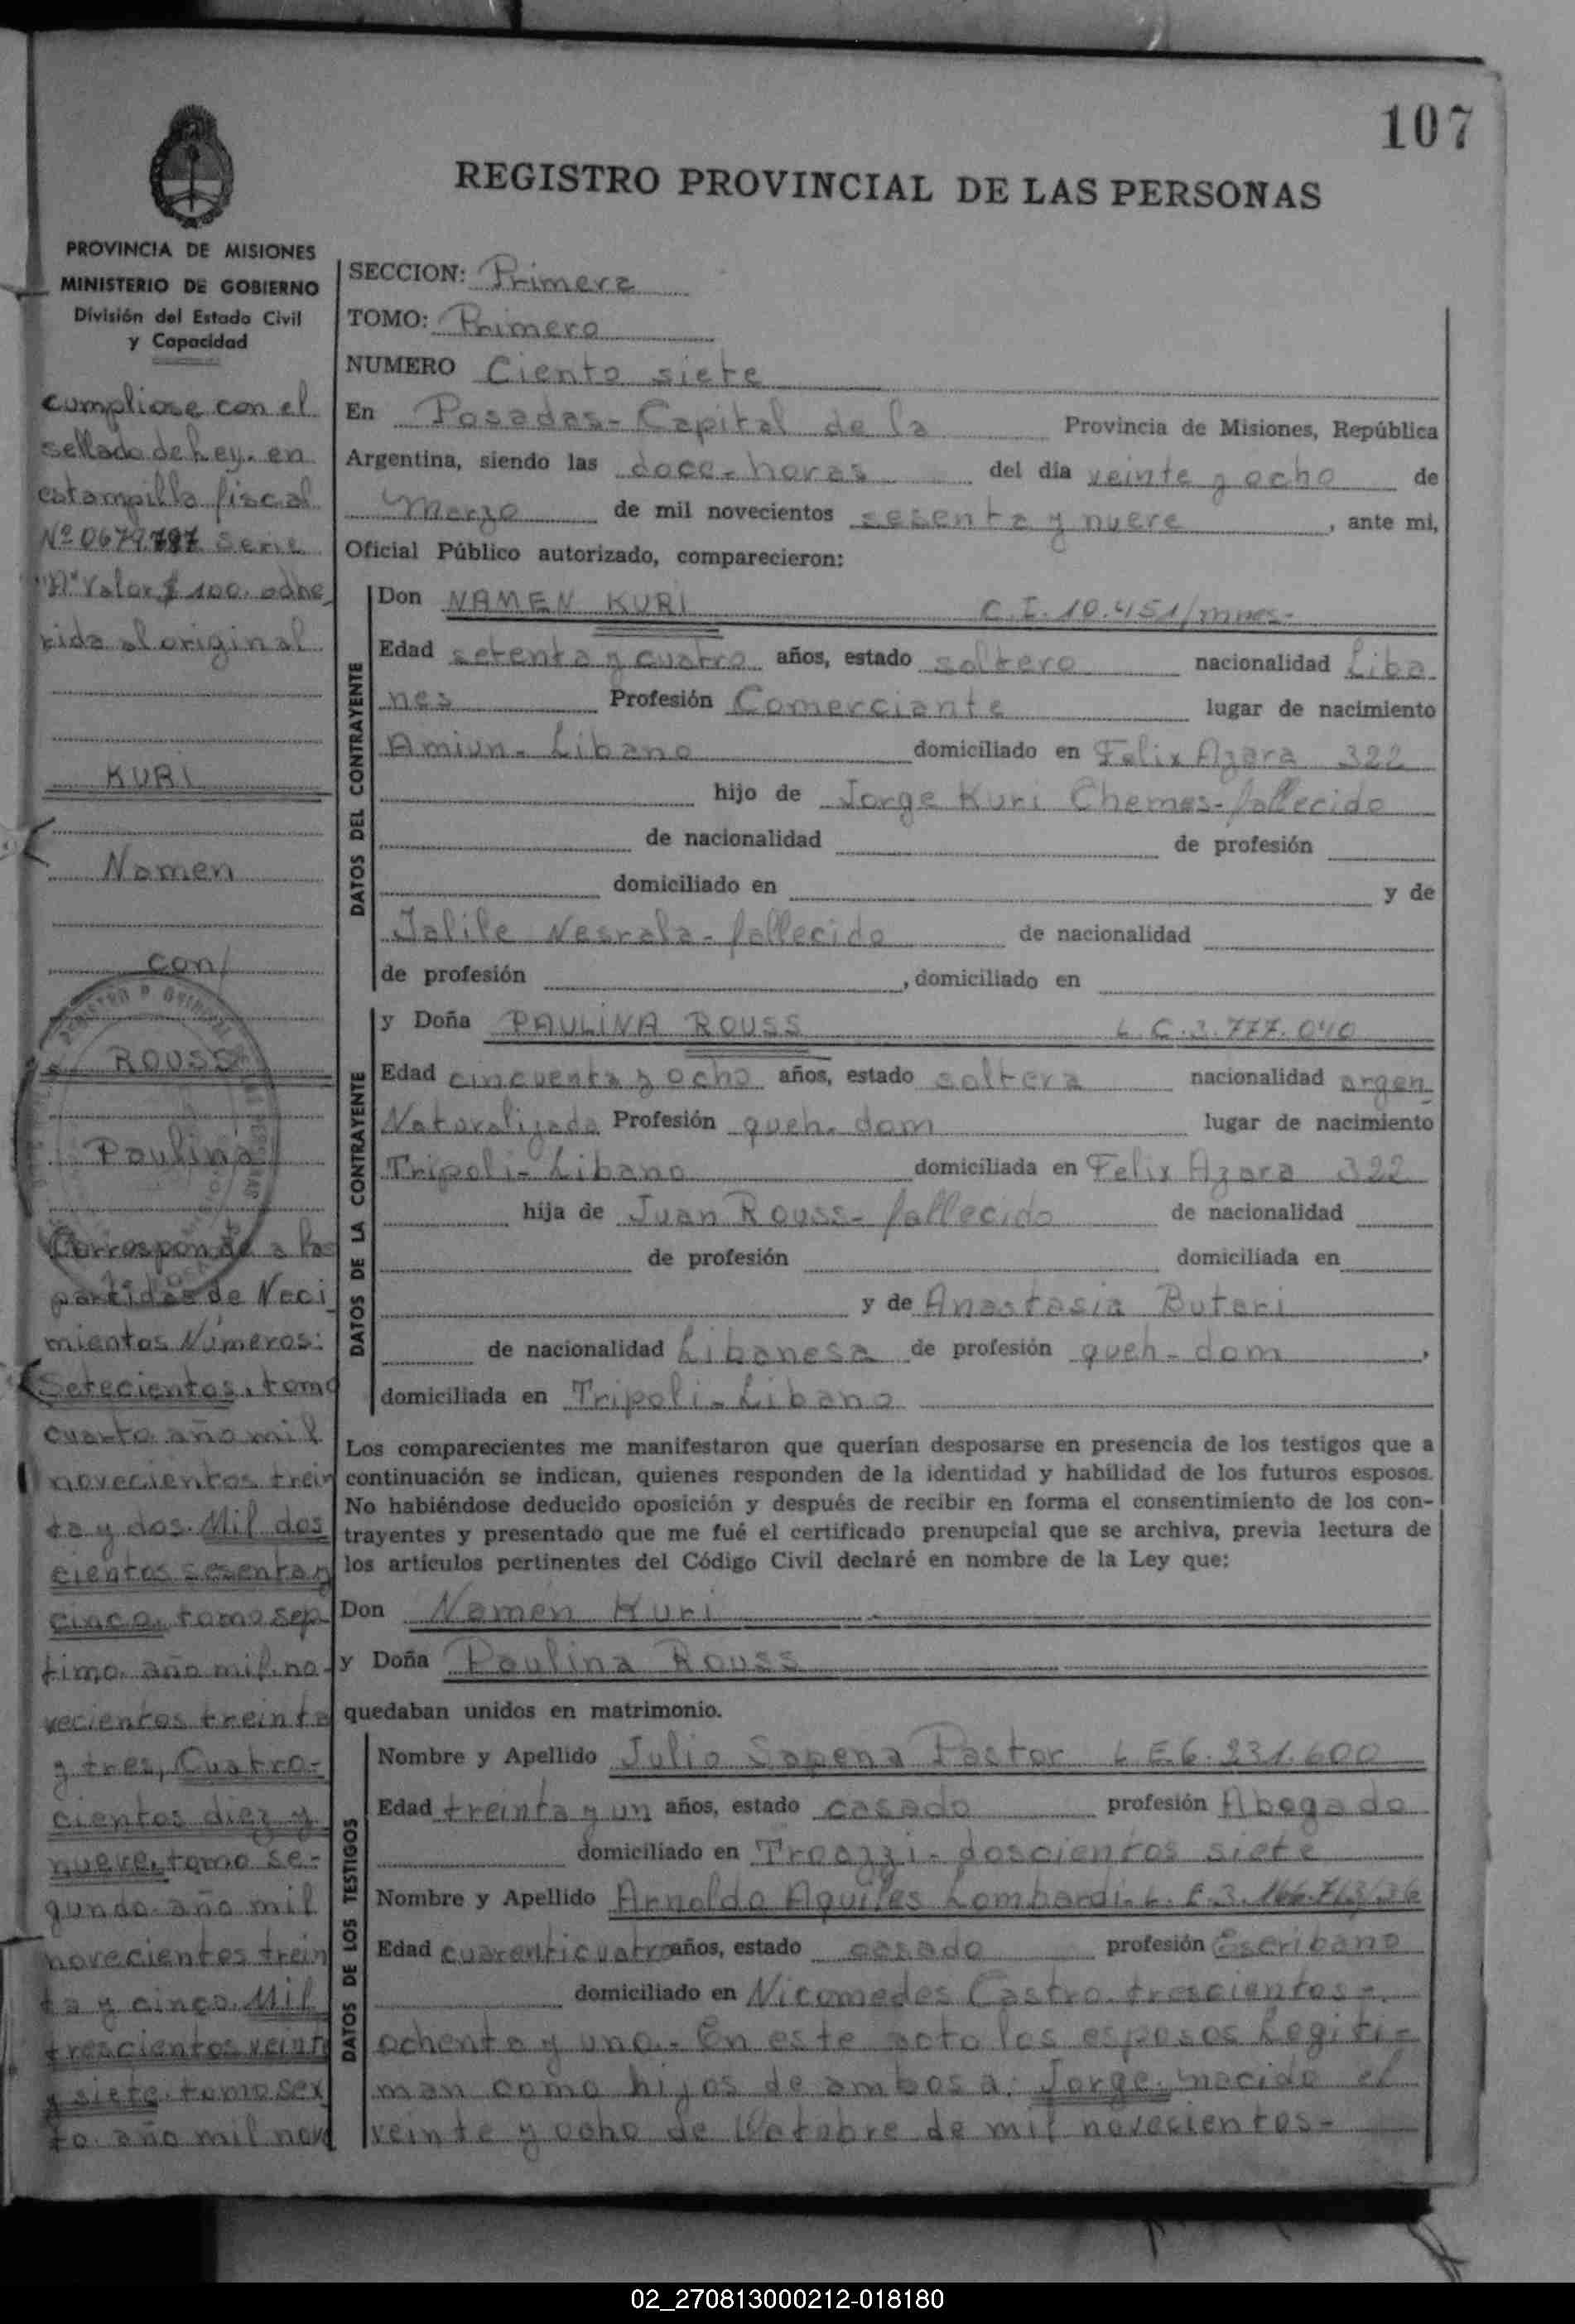 107
REGISTRO PROVINCIAL DE LAS PERSONAS
PROVINCIA DE MISIONES
MINISTERIO DE GOBIERNO
División del Estado Civil
y Capacidad
cumpliose con el
sellado de Ley. en
estampilla fiscal
Nº 0679.787 Serie
"A" Valor $ 100. adhe
rida al original
KURI
Namen
con/
ROUSS
Paulina
Corresponde a las
partidas de Naci
mientos Números:
Setecientos, tomo
cuarto año mil
novecientos trein
ta y dos. Mil dos
cientos sesenta y
cinco, tomo sep
timo. año mil no-
vecientos treinta
y tres, Cuatro-
cientos diez y
nueve, tomo se-
gundo año mil
novecientos trein
ta y cinco. Mil
trescientos vein
y siete tomo sex
to. año mil nove
SECCION: Primera
TOMO: Primero
NUMERO Ciento siete
En Posadas-Capital de la Provincia de Misiones, República
Argentina, siendo las doce-horas del día veinte y ocho de
Marzo de mil novecientos sesenta y nueve, ante mi,
Oficial Público autorizado, comparecieron:
DATOS DEL CONTRAYENTE
Don NAMEN KURI C.I. 10.451/mnes-
Edad setenta y cuatro años, estado soltero nacionalidad Liba
nes Profesión Comerciante lugar de nacimiento
Amiun-Libano domiciliado en Felix Azara 322
hijo de Jorge Kuri Chemes-fallecido
de nacionalidad de profesión
domiciliado en y de
Jalile Nesrala-fallecido de nacionalidad
de profesión , domiciliado en
DATOS DE LA CONTRAYENTE
y Doña PAULINA ROUSS L.C.3.777.040
Edad cincuenta y ocho años, estado soltera nacionalidad argen
Naturalizada Profesión queh-dom lugar de nacimiento
Tripoli-Libano domiciliada en Felix Azara 322
hija de Juan Rouss-fallecido de nacionalidad
de profesión domiciliada en
y de Anastasia Buteri
de nacionalidad Libanesa de profesión queh-dom,
domiciliada en Tripoli-Libano
Los comparecientes me manifestaron que querían desposarse en presencia de los testigos que a
continuación se indican, quienes responden de la identidad y habilidad de los futuros esposos.
No habiéndose deducido oposición y después de recibir en forma el consentimiento de los con-
trayentes y presentado que me fué el certificado prenupcial que se archiva, previa lectura de
los artículos pertinentes del Código Civil declaré en nombre de la Ley que:
Don Namen Kuri
y Doña Paulina Rouss
quedaban unidos en matrimonio.
DATOS DE LOS TESTIGOS
Nombre y Apellido Julio Sapena Pastor L.E.6.231.600
Edad treinta y un años, estado casado profesión Abogado
domiciliado en Troazzi-doscientos siete
Nombre y Apellido Arnoldo Aquiles Lombardi-L.E.3.
Edad cuarenticuatro años, estado casado profesión Escribano
domiciliado en Nicomedes Castro. trescientos-
ochenta y uno.-En este acto los esposos Legiti-
man como hijos de ambos a: Jorge, nacido el
veinte y ocho de Octubre de mil novecientos-
02_270813000212-018180